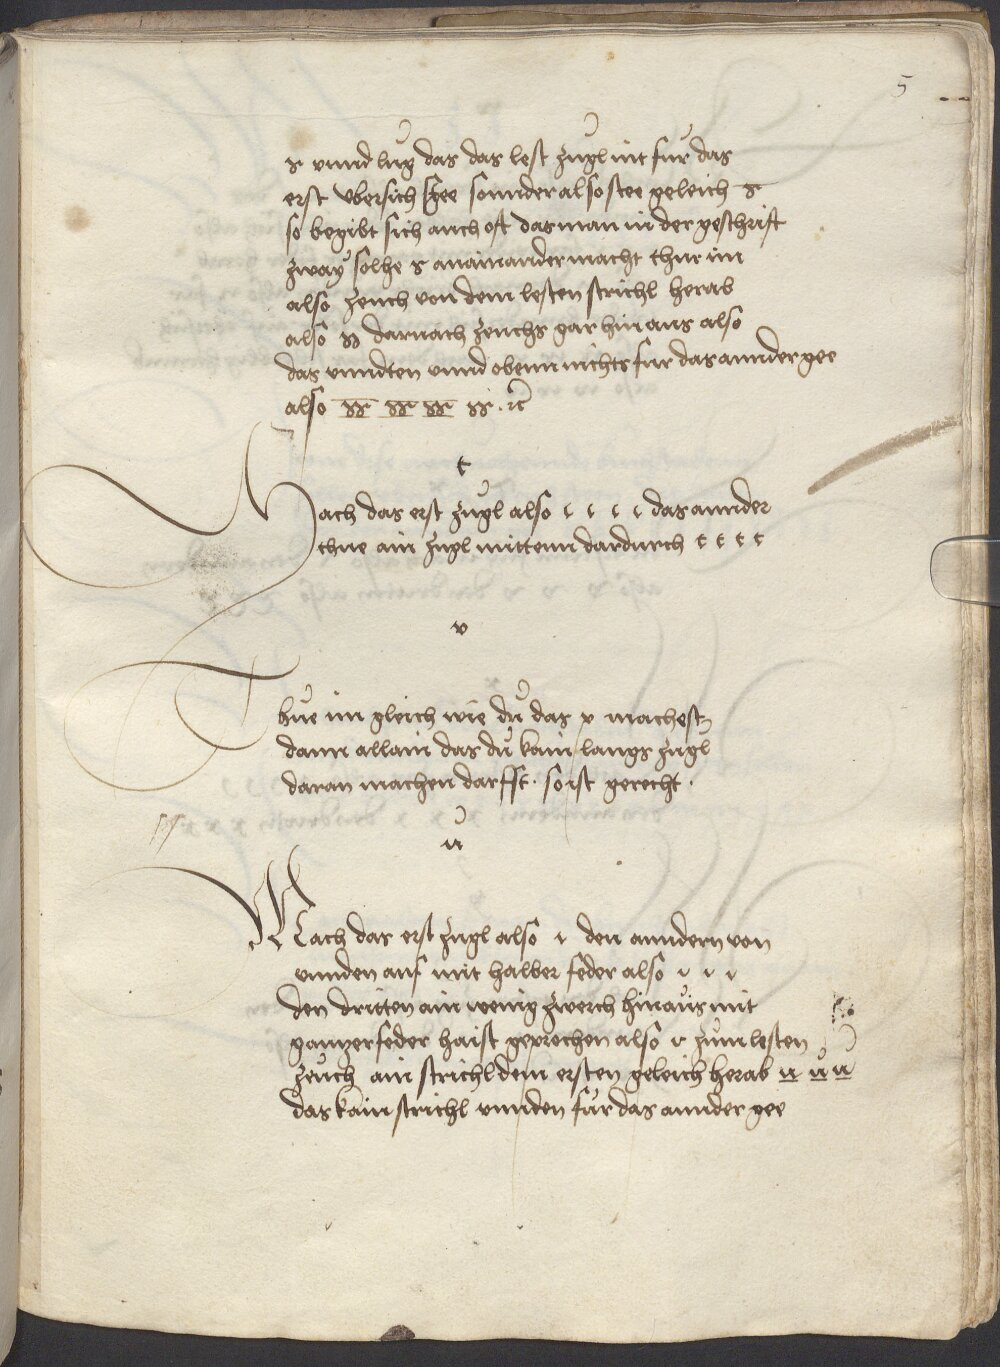 5
s vnnd lug das das lest zugl nit fur das
erst vbersich gee sonnder also stee geleich s
so begibt sich auch oft das man in der geschrifft
zway solhe s anainander macht thue im
also zeuch von dem lesten strichl herab
also ss darnach zeuchs gar hinaus also
das vnndten vnnd obenn nichts fur das annder gee
also ss ss ss ss . rc
t
Mach das erst zugl also ι ι ι ι das annder
thue ain zugl mittenn dardurch t t t t
v
Thue im gleich wie du das v machest
dann allain das du kain langs zugl
daran machen darfst . so ist gerecht .
u
Mach das erst zugl also ι den anndern von
vnnden auf mit halber feder also ι ι ι
den dritten ain wenig zwerch hinaus mit
gantzer feder haist geprochen also r zum lesten
zeuch ain strichl dem ersten geleich herab u u u
das kain strichl vnnden fur das annder gee